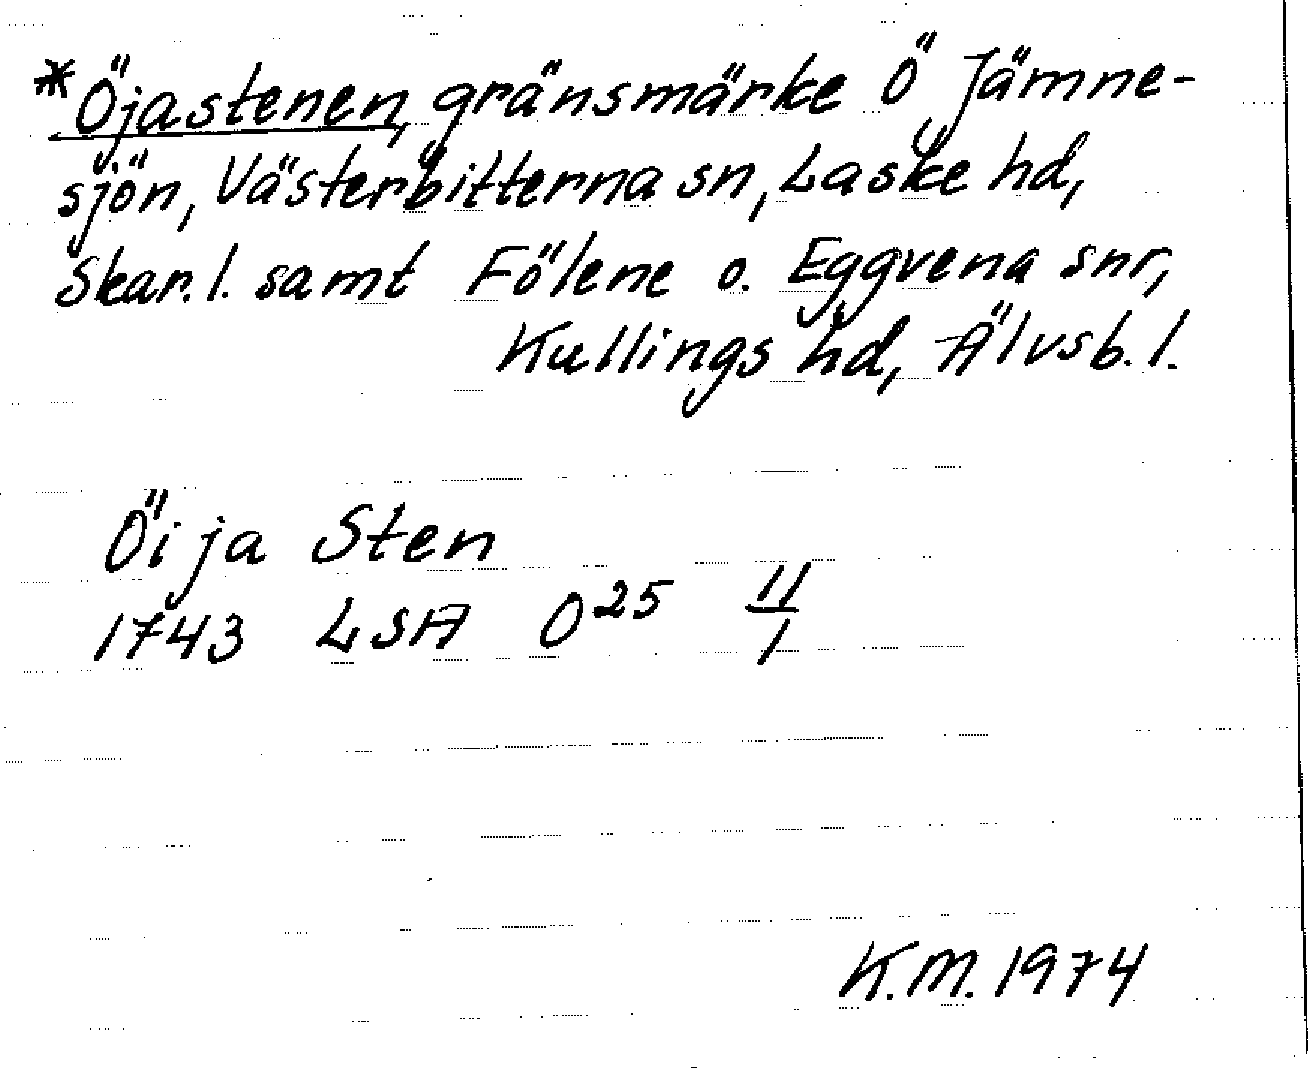 *Öjastenen, gränsmärke Ö Jämne-
sjön, Västerbitterna sn, Laske hd,
Skar. l. samt Fölene o. Eggvena snr,
Kullings hd, Älvsb. l.
Öija Sten
1743 LSA O²⁵ 11/1
K.M. 1974